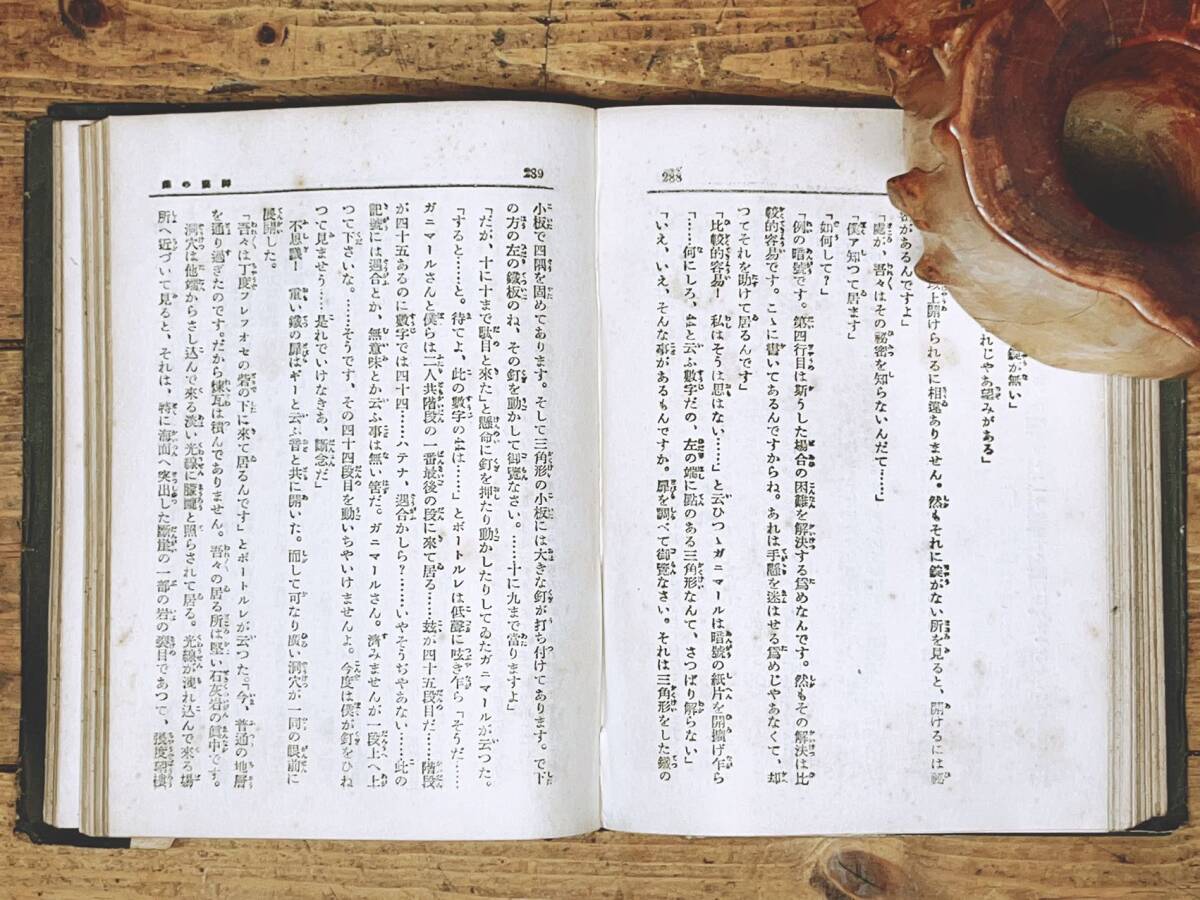 288
錠が無い」
れじやあ望みがある」
以上開けられるに相違ありません。然もそれに錠がない所を見ると、開けるには祕
密があるんですよ」
「處が、吾々はその祕密を知らないんだて……」
「僕ァ知つて居ます」
「如何して?」
「例の暗號です。第四行目は斯うした場合の困難を解決する爲めなんです。然もその解決は比
較的容易です。こゝに書いてあるんですからね。あれは手懸を迷はせる爲めじやあなくて、却
つてそれを助けて居るんです」
「比較的容易! 私はそうは思はない……」と云ひつゝガニマールは暗號の紙片を開擴げ乍ら
「……何にしろ、と云ふ數字だの、左の端に點のある三角形なんて、さつぱり解らない」
「いえ、いえ、そんな事があるもんですか。扉を調べて御覽なさい。それは三角形をした鐵の
239
小板で四隅を固めてあります。そして三角形の小板には大きな釘が打ち付けてあります。で下
の方の左の鐵板のね、その釘を動かして御覽なさい。……十に九まで當りますよ」
「だが、十に十まで駄目と來た」と懸命に釘を押たり動かしたりしてゐたガニマールが云つた。
「すると……と。待てよ、此の數字のは……」とボートルレは低聲に呟き乍ら「そうだ……
ガニマールさんと僕らは二人共階段の一番最後の段に來て居る……玆が四十五段目だ……階段
が四十五あるのに數字では四十四……ハテナ、遇合かしら?……いやそうぢやあない……此の
記號には遇合とか、無意味とか云ふ事は無い筈だ。ガニマールさん。濟みませんが一段上へ上
つて下さいな。……そうです、その四十四段目を動いちやいけませんよ。今度は僕が釘をひね
つて見ませう……是れでいけなきあ、斷念だ」
不思議! 重い鐵の扉はギーと云ふ音と共に開いた。而して可なり廣い洞穴が一同の眼前に
展開した。
「吾々は丁度フレフオセの砦の下に來て居るんです」とボートルレが云つた。「今、普通の地層
を通り過ぎたのです。だから煉瓦は積んでありません。吾々の居る所は堅い石灰岩の眞中です。
洞穴は他端からさし込んで來る淡い光線に朦朧と照らされて居る。光線が洩れ込んで來る場
所へ近づいて見ると、それは、特に海面へ突出した斷崖の一部の岩の裂目であつて、